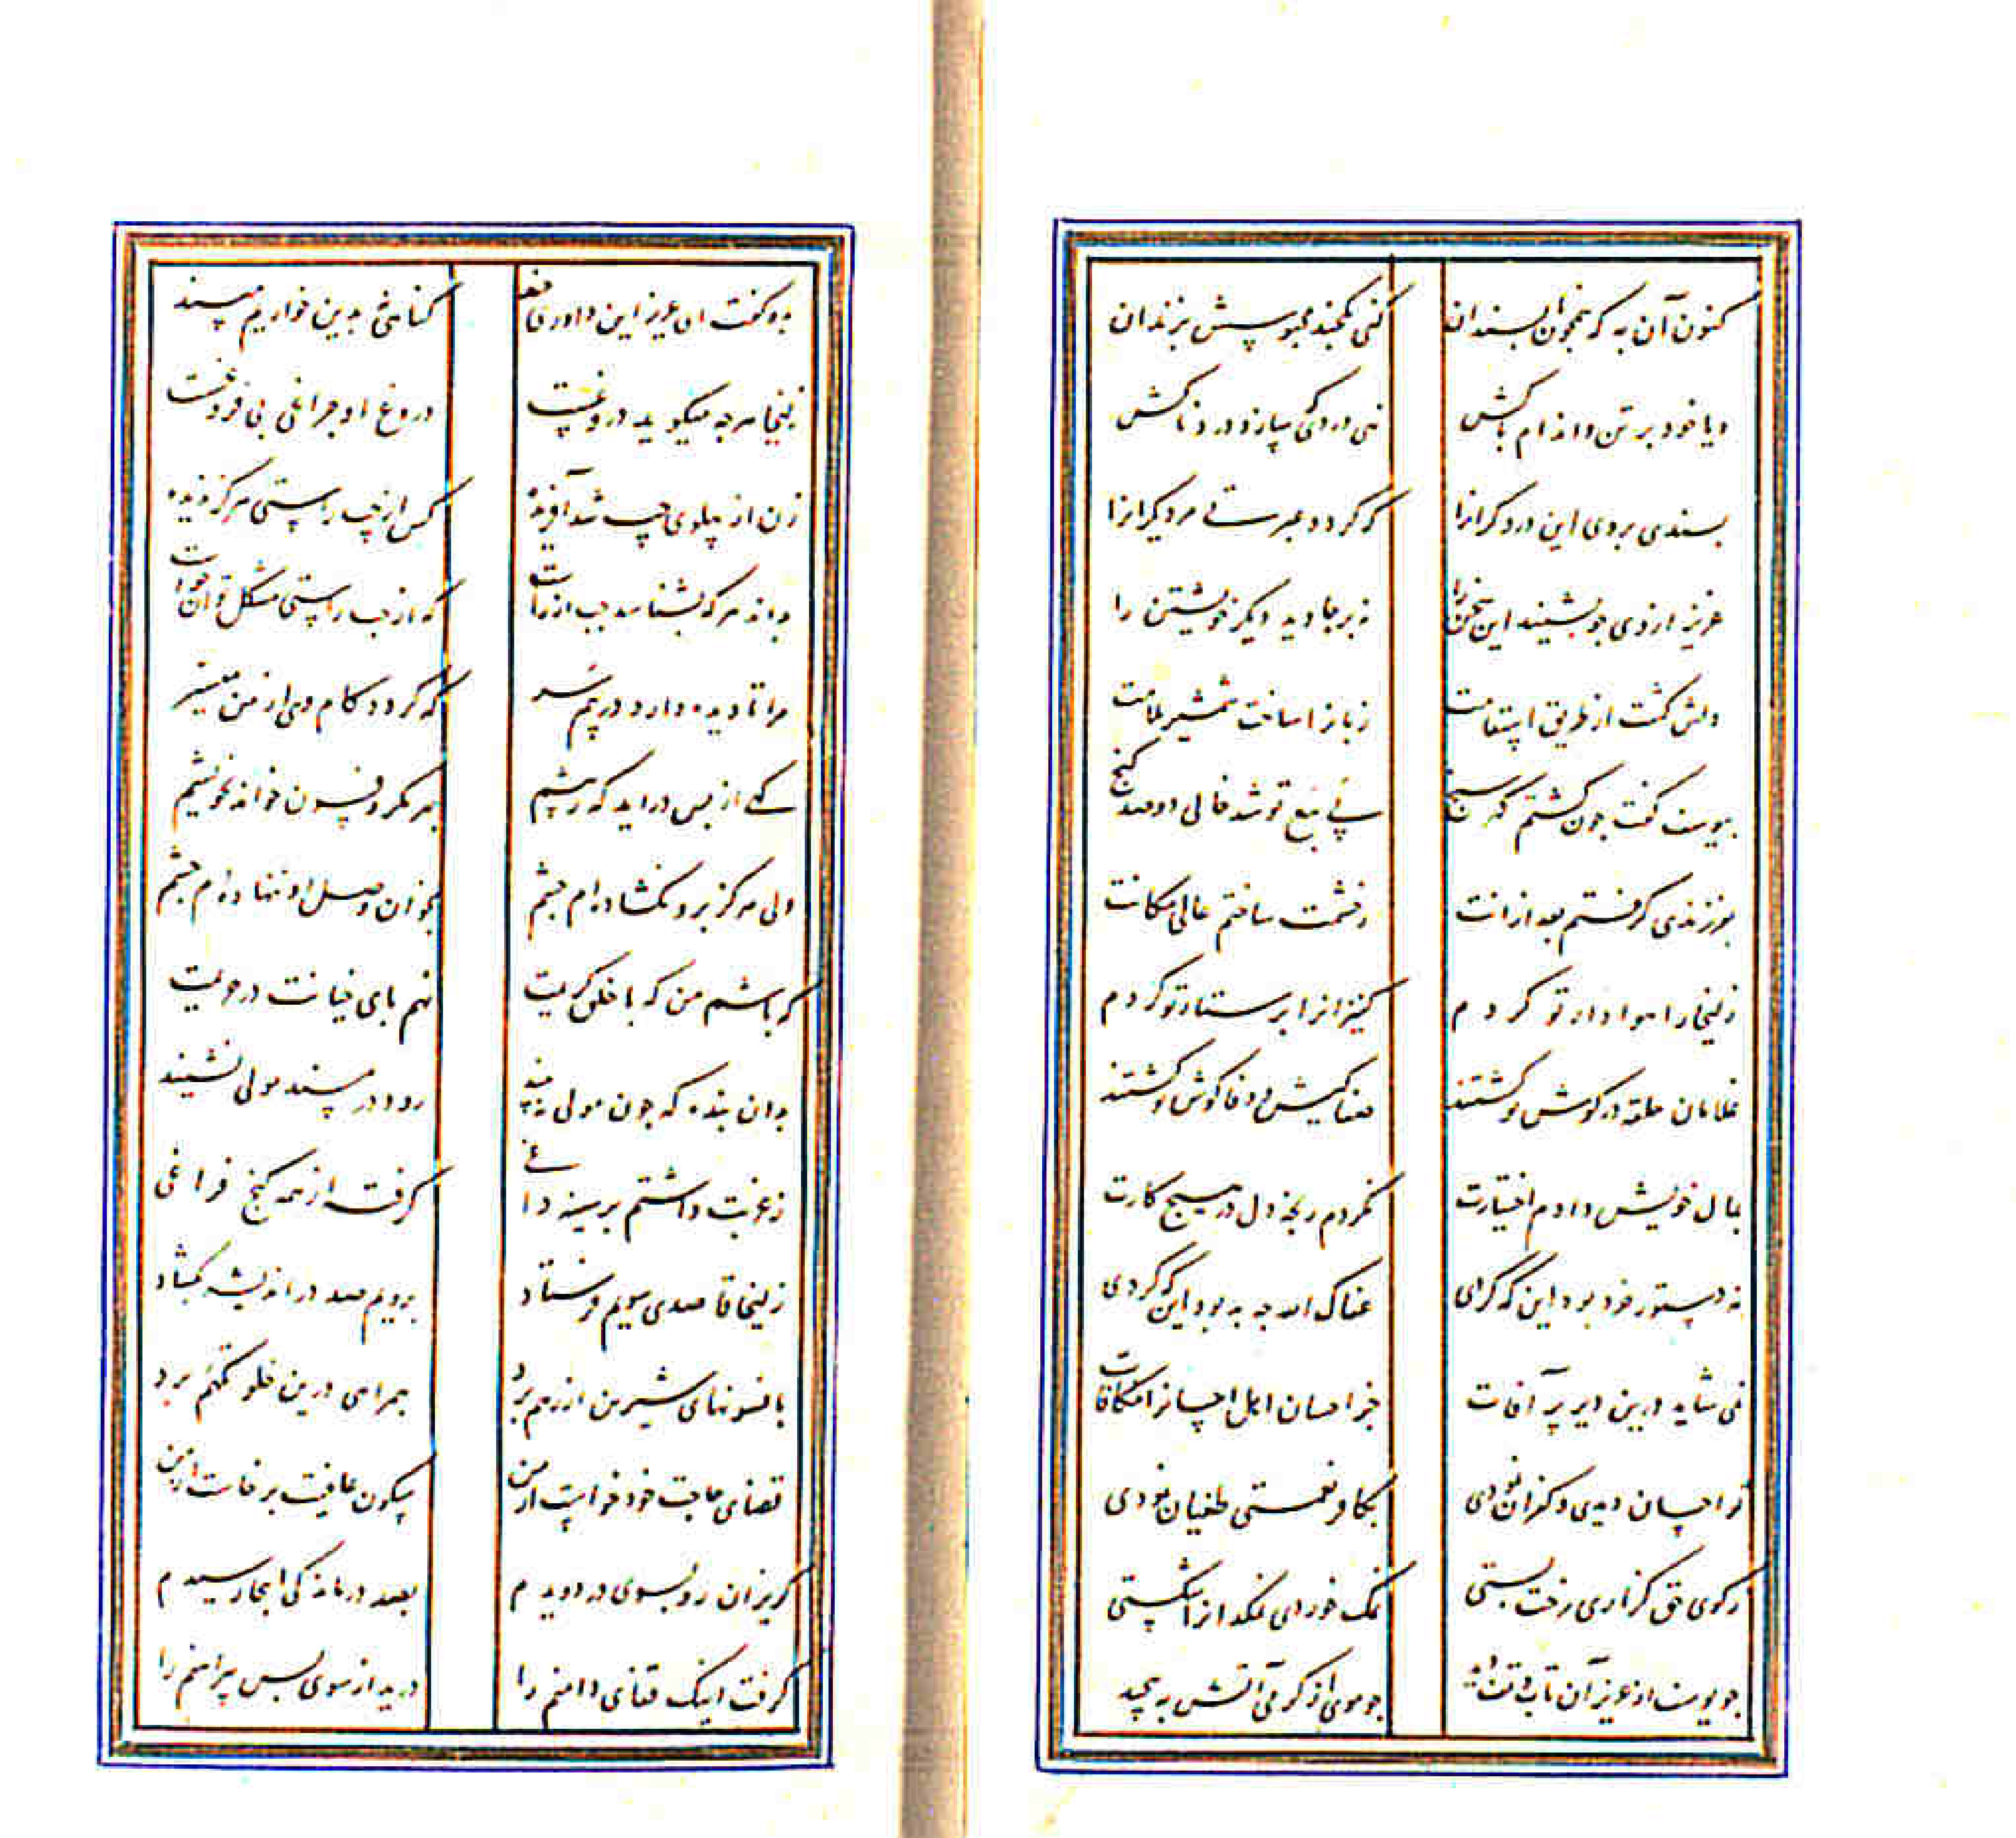 کنون آن به که همچون ناپسندان کنی یکچند محبوسش بزندان
ویا خود بر تن و اندام پاکش نهی دردی که سازد دردناکش
پسندی بروی این درد گرانرا که گردد عبرتی مر دیگرانرا
عزیز از وی چو بشنید این سخن را نه بر جا دید دیگر خویشتن را
دلش گشت از طریق استقامت زبانرا ساخت شمشیر ملامت
بیوسف گفت چون گشتم گهرسنج پی بیع تو شد خالی دو صد گنج
بفرزندی گرفتم بعد از انت ز حشمت ساختم عالی مکانت
زلیخارا هوادار تو کردم کنیزانرا پرستار تو کردم
غلامان حلقه در گوش تو گشتند صفا کیش و وفا کوش تو گشتند
بمال خویش دادم اختیارت نکردم رنجه دل در هیچ کارت
نه دستور خرد بود این که کردی عفاک الله چه بد بود این که کردی
نمی شاید درین دیر پر آفات جز احسان اهل احسانرا مکافات
تو احسان دیدی و کفران نمودی بکافر نعمتی طغیان نمودی
ز کوی حق گزاری رخت بستی نمک خوردی نمکدانرا شکستی
چو یوسف از عزیز آن تاب و تف دید چو موی از گرمی آتش به پیچید
بدو گفت ای عزیز این داوری چند گناهی نی بدین خواریم مپسند
زلیخا هر چه میگوید دروغست دروغ او چراغی بی فروغست
زن از پهلوی چپ شد آفریده کس از چپ راستی هرگز ندیده
بداند هر که بشناسد چپ از راست که از چپ راستی مشکل توان خواست
مرا تا دیده دارد در پیم سر که گردد کام وی از من میسر
گهی از پس در اید گه ز پیشم بهر مکر و فسون خواند بخویشم
ولی هرگز برو نگشاده ام چشم بخوان وصل او ننهاده ام چشم
که باشم من که با خلق کریمت نهم پای خیانت در حریمت
بدان بنده که چون مولی نه بیند رود در مسند مولی نشیند
ز غربت داشتم بر سینه داغی گرفته از همه کنج فراغی
زلیخا قاصدی سویم فرستاد برویم صد در اندیشه بگشاد
بافسونهای شیرین از رهم برد بهمراهی درین خلوتگهم برد
قضای حاجت خود خواست از من سکون عافیت برخاست از من
گریزان رو بسوی در دویدم بصد درماندگی اینجا رسیدم
گرفت اینک قفای دامنم را درید از سوی پس پیراهنم را